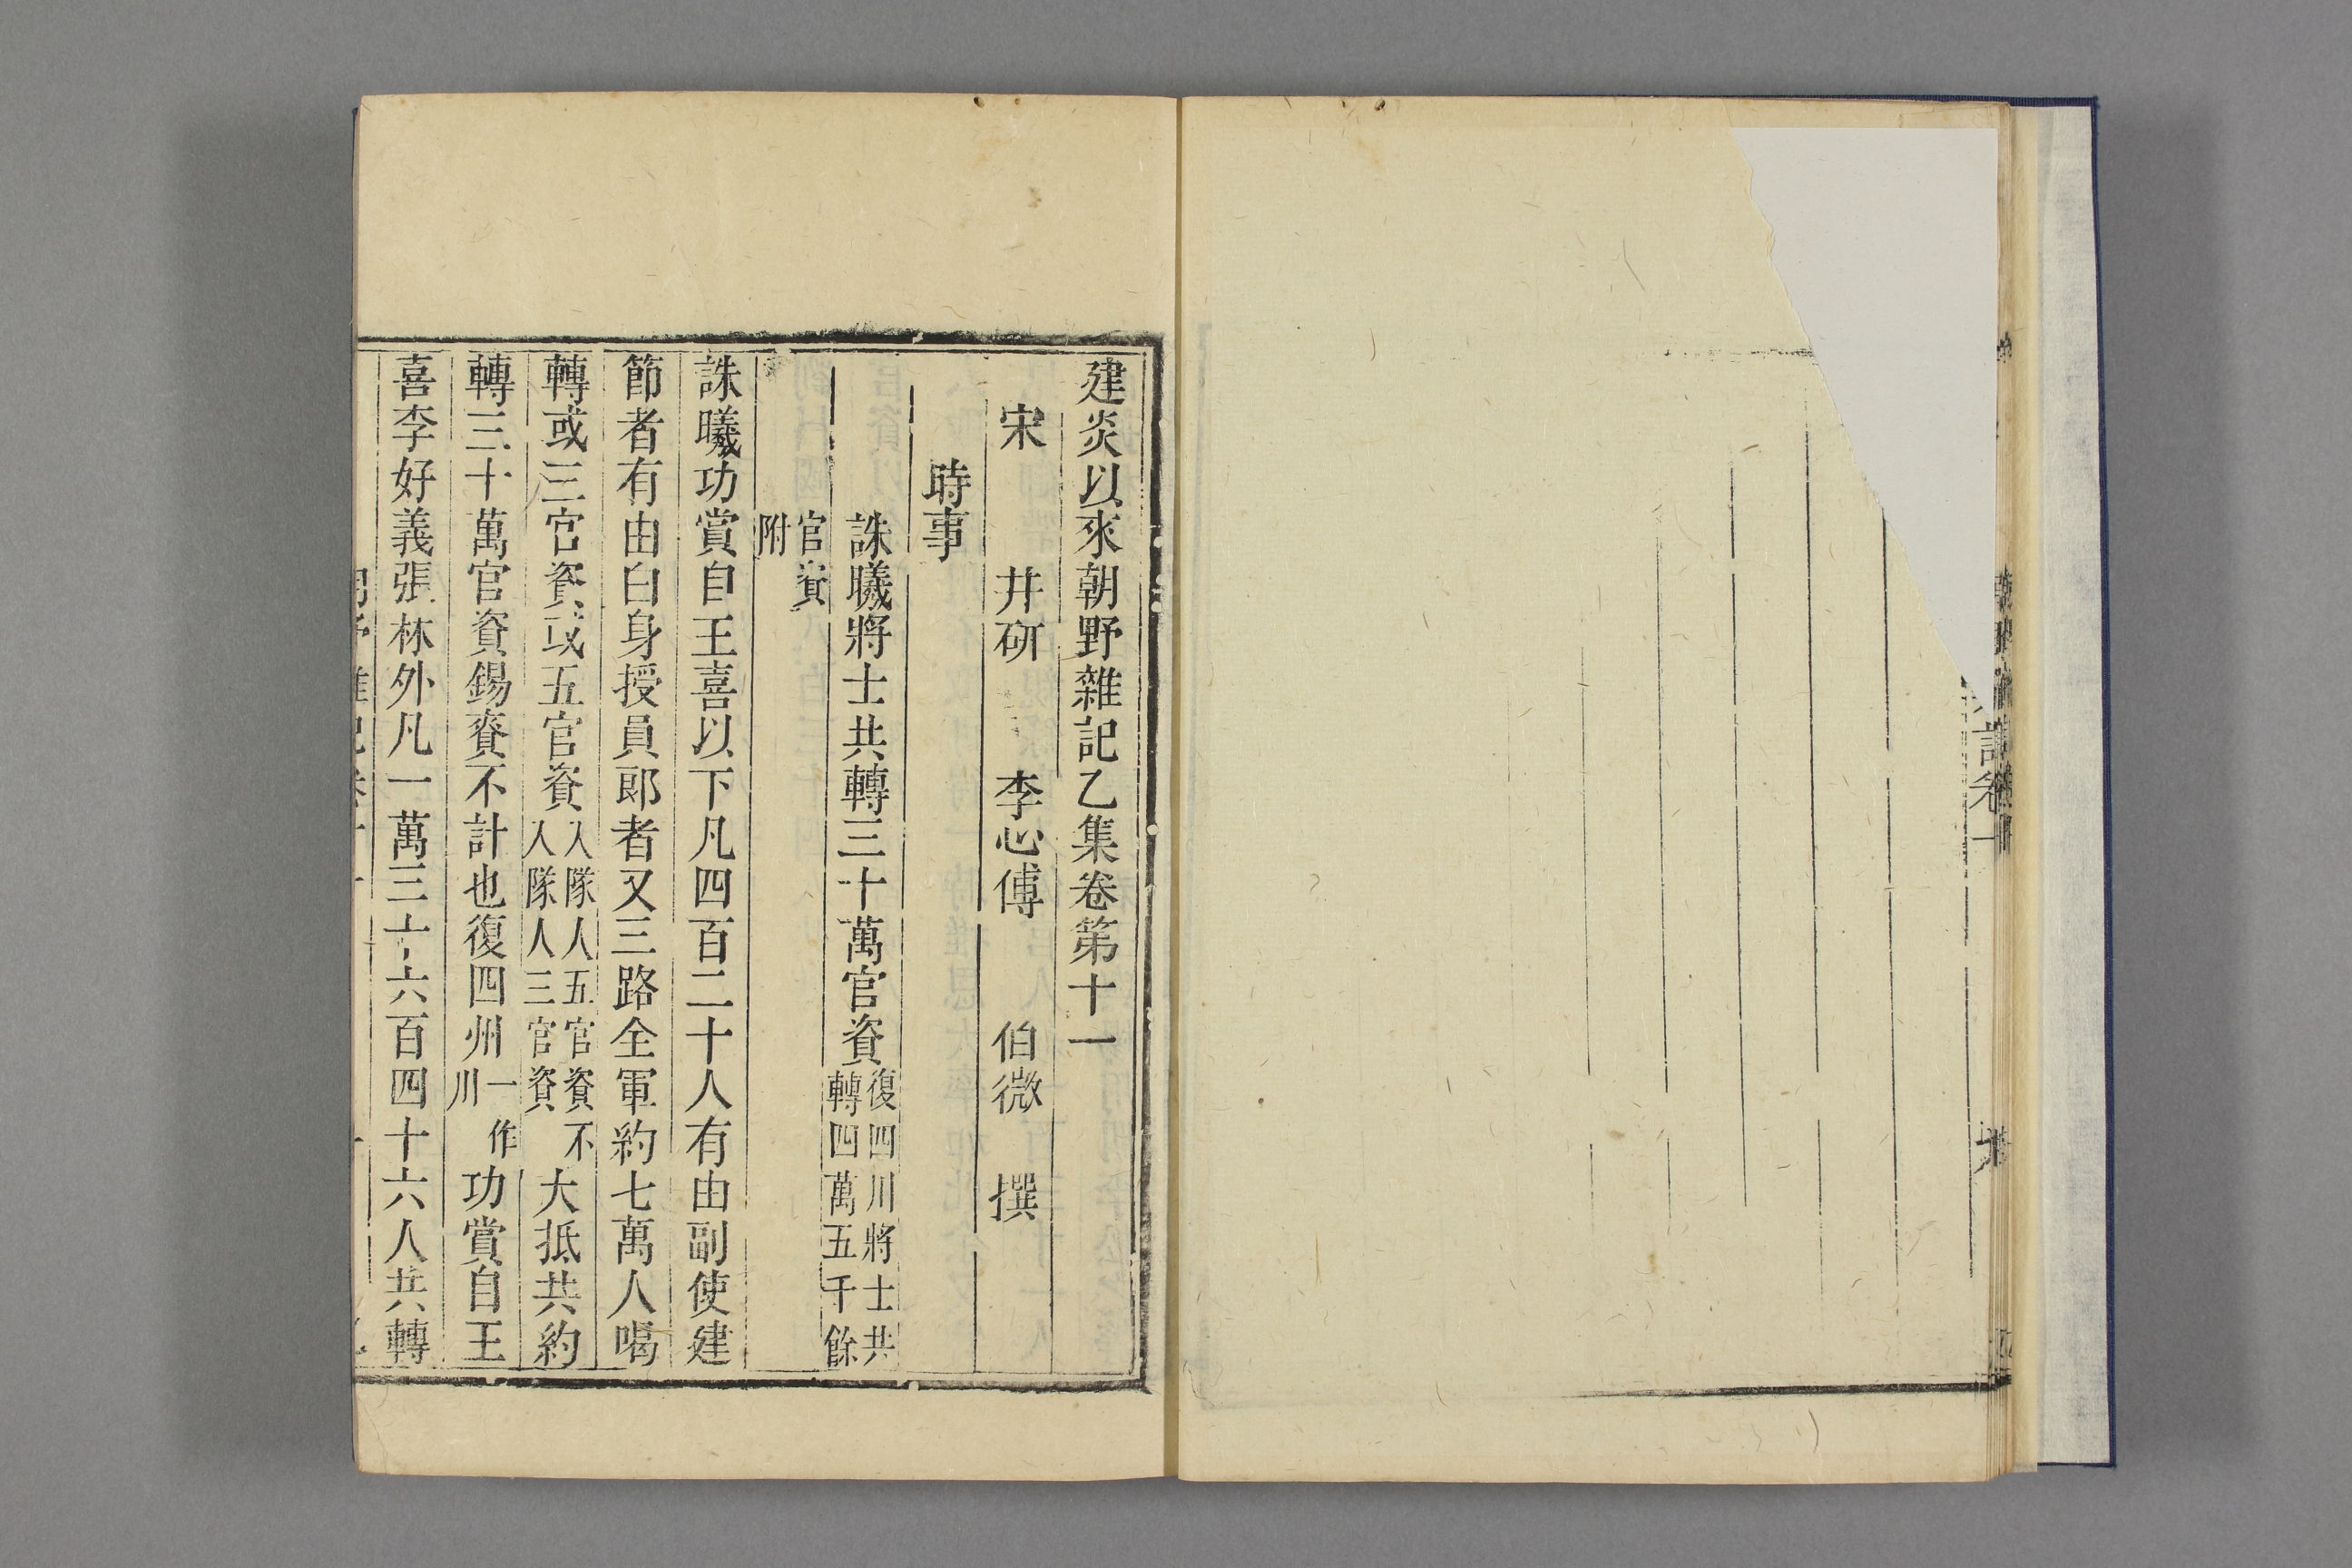 建炎以來朝野雜記乙集卷第十一
宋 井研 李心傳 伯微 撰
時事
誅曦將士共轉三十萬官資復四川將士共轉四萬五千餘
官資附
誅曦功賞自王喜以下凡四百二十人有由副使建
節者有由白身授員郎者又三路全軍約七萬人喝
轉或三官資或五官資入隊人五官資不入隊人三官資大抵共約
轉三十萬官資錫賚不計也復四州一作川功賞自王
喜李好義張林外凡一萬三十六百四十六人共轉